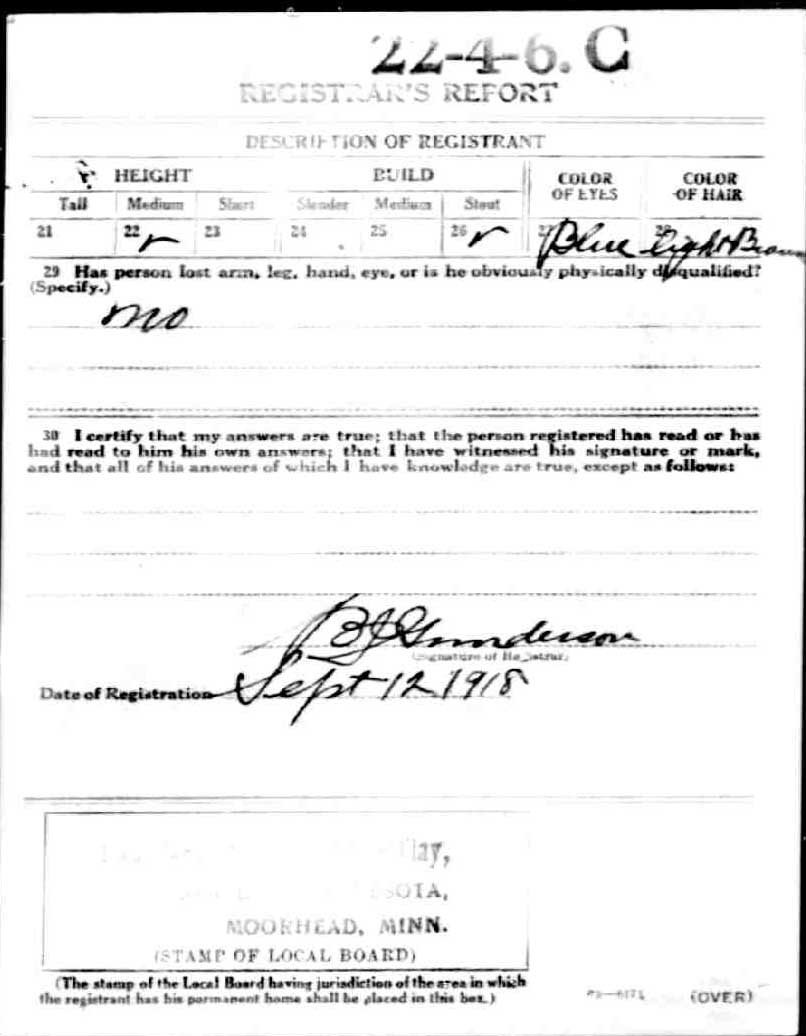 22-4-6. C
REGISTRAR'S REPORT
DESCRIPTION OF REGISTRANT
HEIGHT BUILD COLOR OF EYES COLOR OF HAIR
Tall Medium Short Slender Medium Stout
21 22 ✓ 23 24 25 26 ✓ 27 Blue 28 light Brown
29 Has person lost arm, leg, hand, eye, or is he obviously physically disqualified?
(Specify.)
no
30 I certify that my answers are true; that the person registered has read or has
had read to him his own answers; that I have witnessed his signature or mark,
and that all of his answers of which I have knowledge are true, except as follows:
B J Gunderson
(Signature of Registrar)
Date of Registration Sept 12 1918
MOORHEAD, MINN.
(STAMP OF LOCAL BOARD)
(The stamp of the Local Board having jurisdiction of the area in which
the registrant has his permanent home shall be placed in this box.)
(OVER)